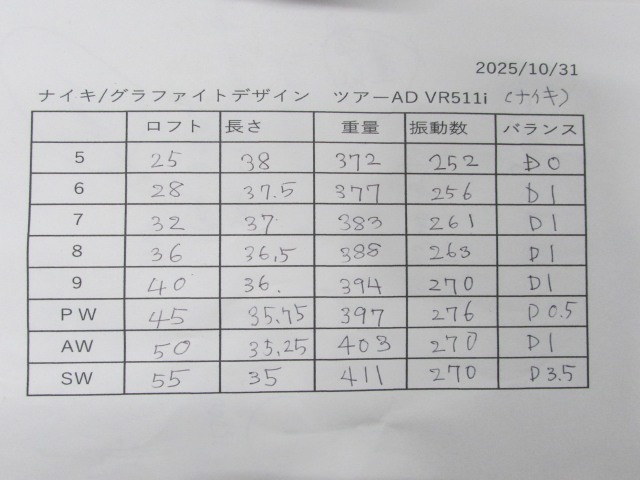 2025/10/31
ナイキ/グラファイトデザイン ツアーAD VR511i (ナイキ)
ロフト 長さ 重量 振動数 バランス
5 25 38 372 252 D0
6 28 37.5 377 256 D1
7 32 37 383 261 D1
8 36 36.5 388 263 D1
9 40 36. 394 270 D1
PW 45 35.75 397 276 D0.5
AW 50 35.25 403 270 D1
SW 55 35 411 270 D3.5